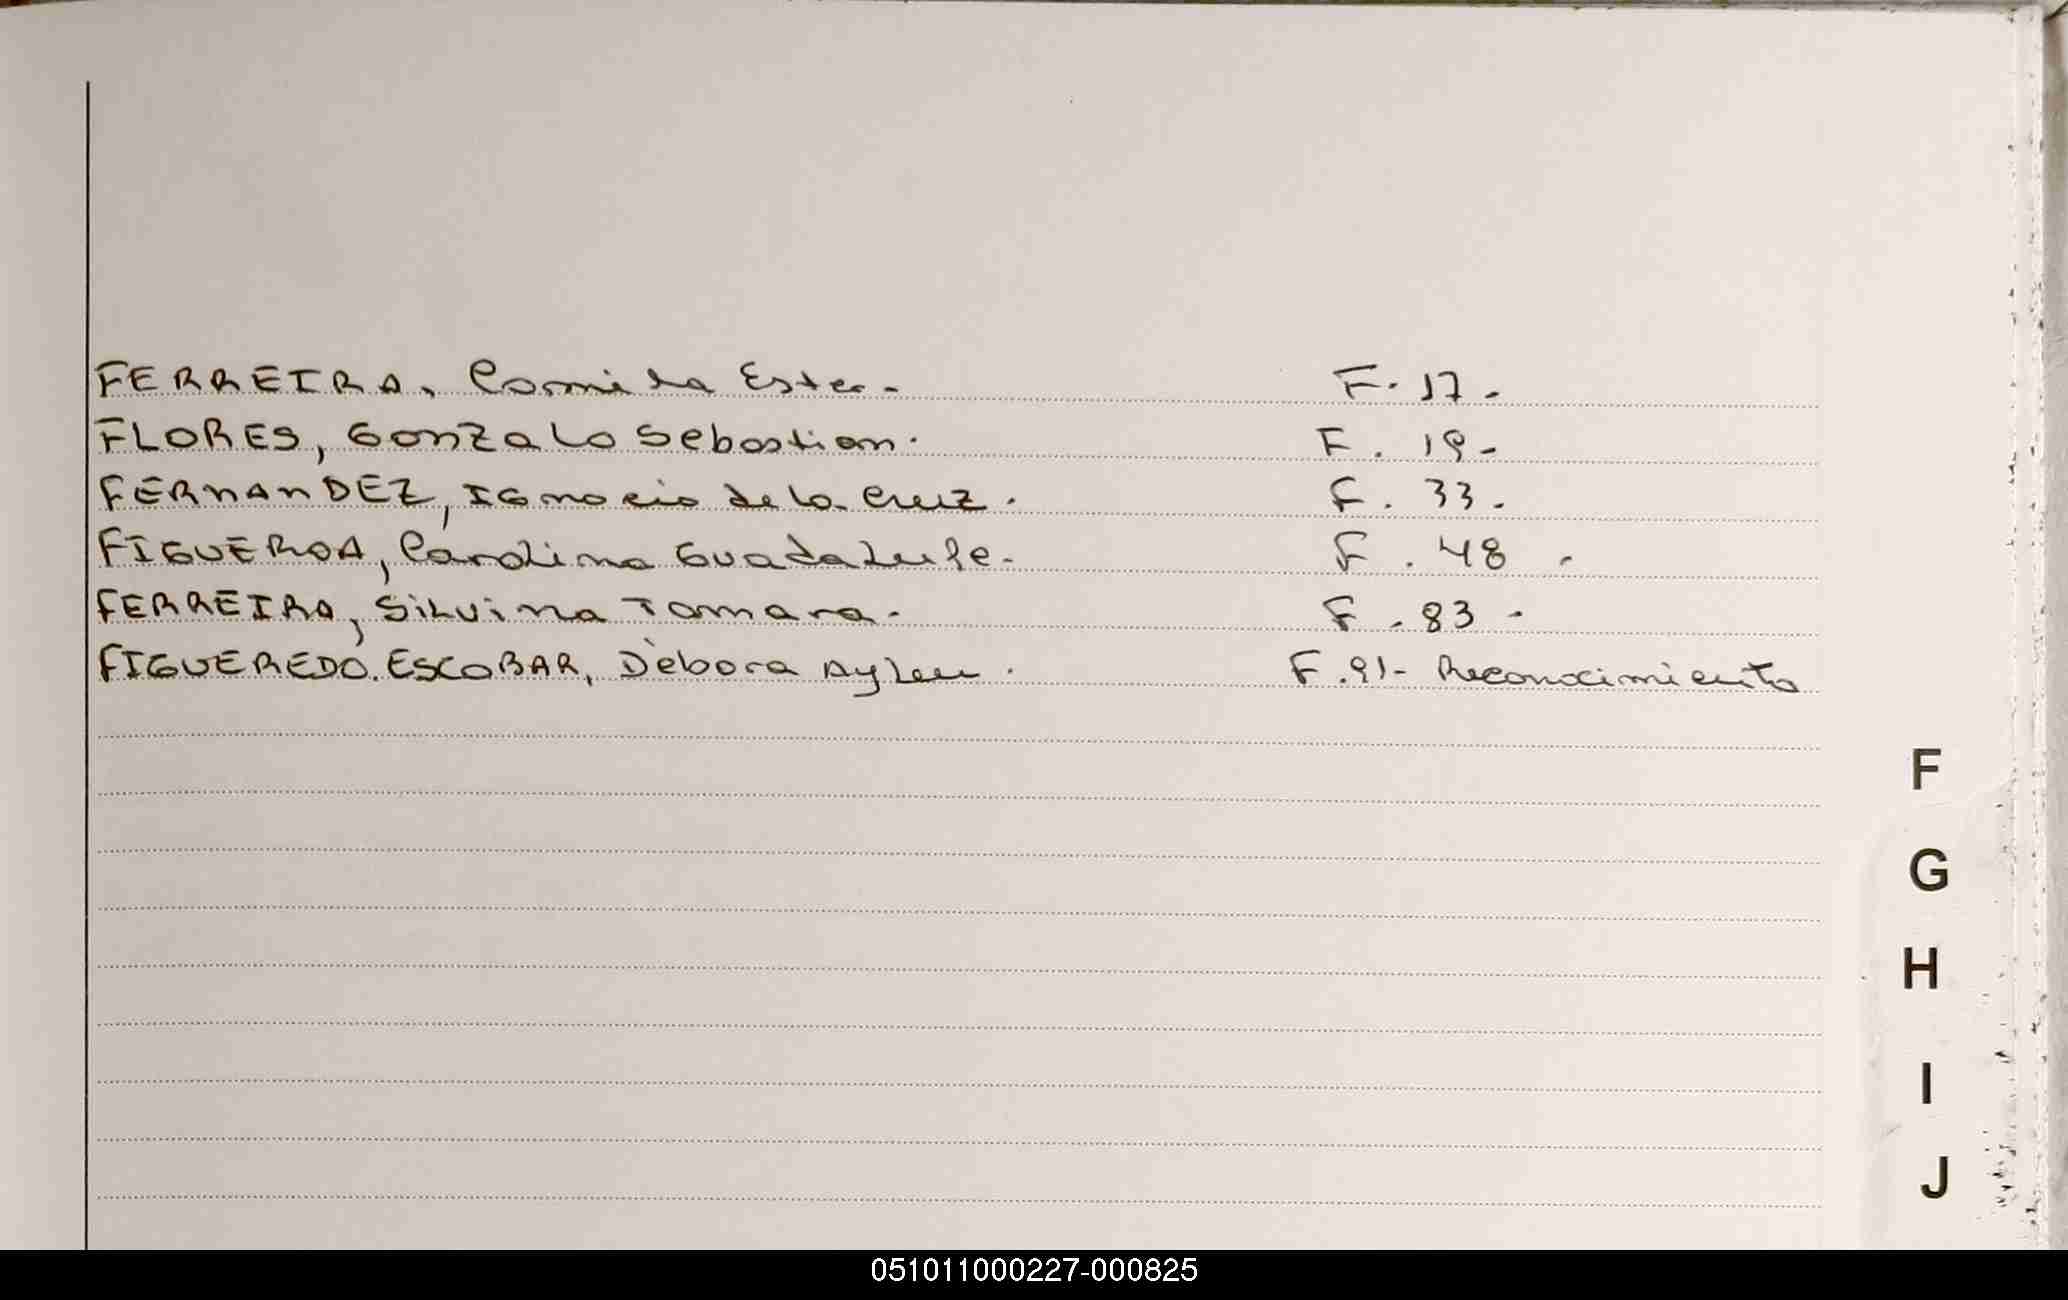 FERREIRA, Camila Ester- F. 17-
FLORES, Gonzalo Sebastian. F. 19-
FERNANDEZ, Ignacio de la Cruz. F. 33-
FIGUEROA, Carolina Guadalupe- F. 48-
FERREIRA, Silvina Tamara- F. 83-
FIGUEREDO.ESCOBAR, Dèbora Aylen. F. 91- Reconocimiento
F
G
H
I
J
051011000227-000825